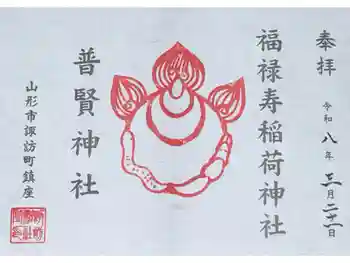 奉拝
令和八年三月二十一日
福禄寿稲荷神社
普賢神社
山形市諏訪町鎮座